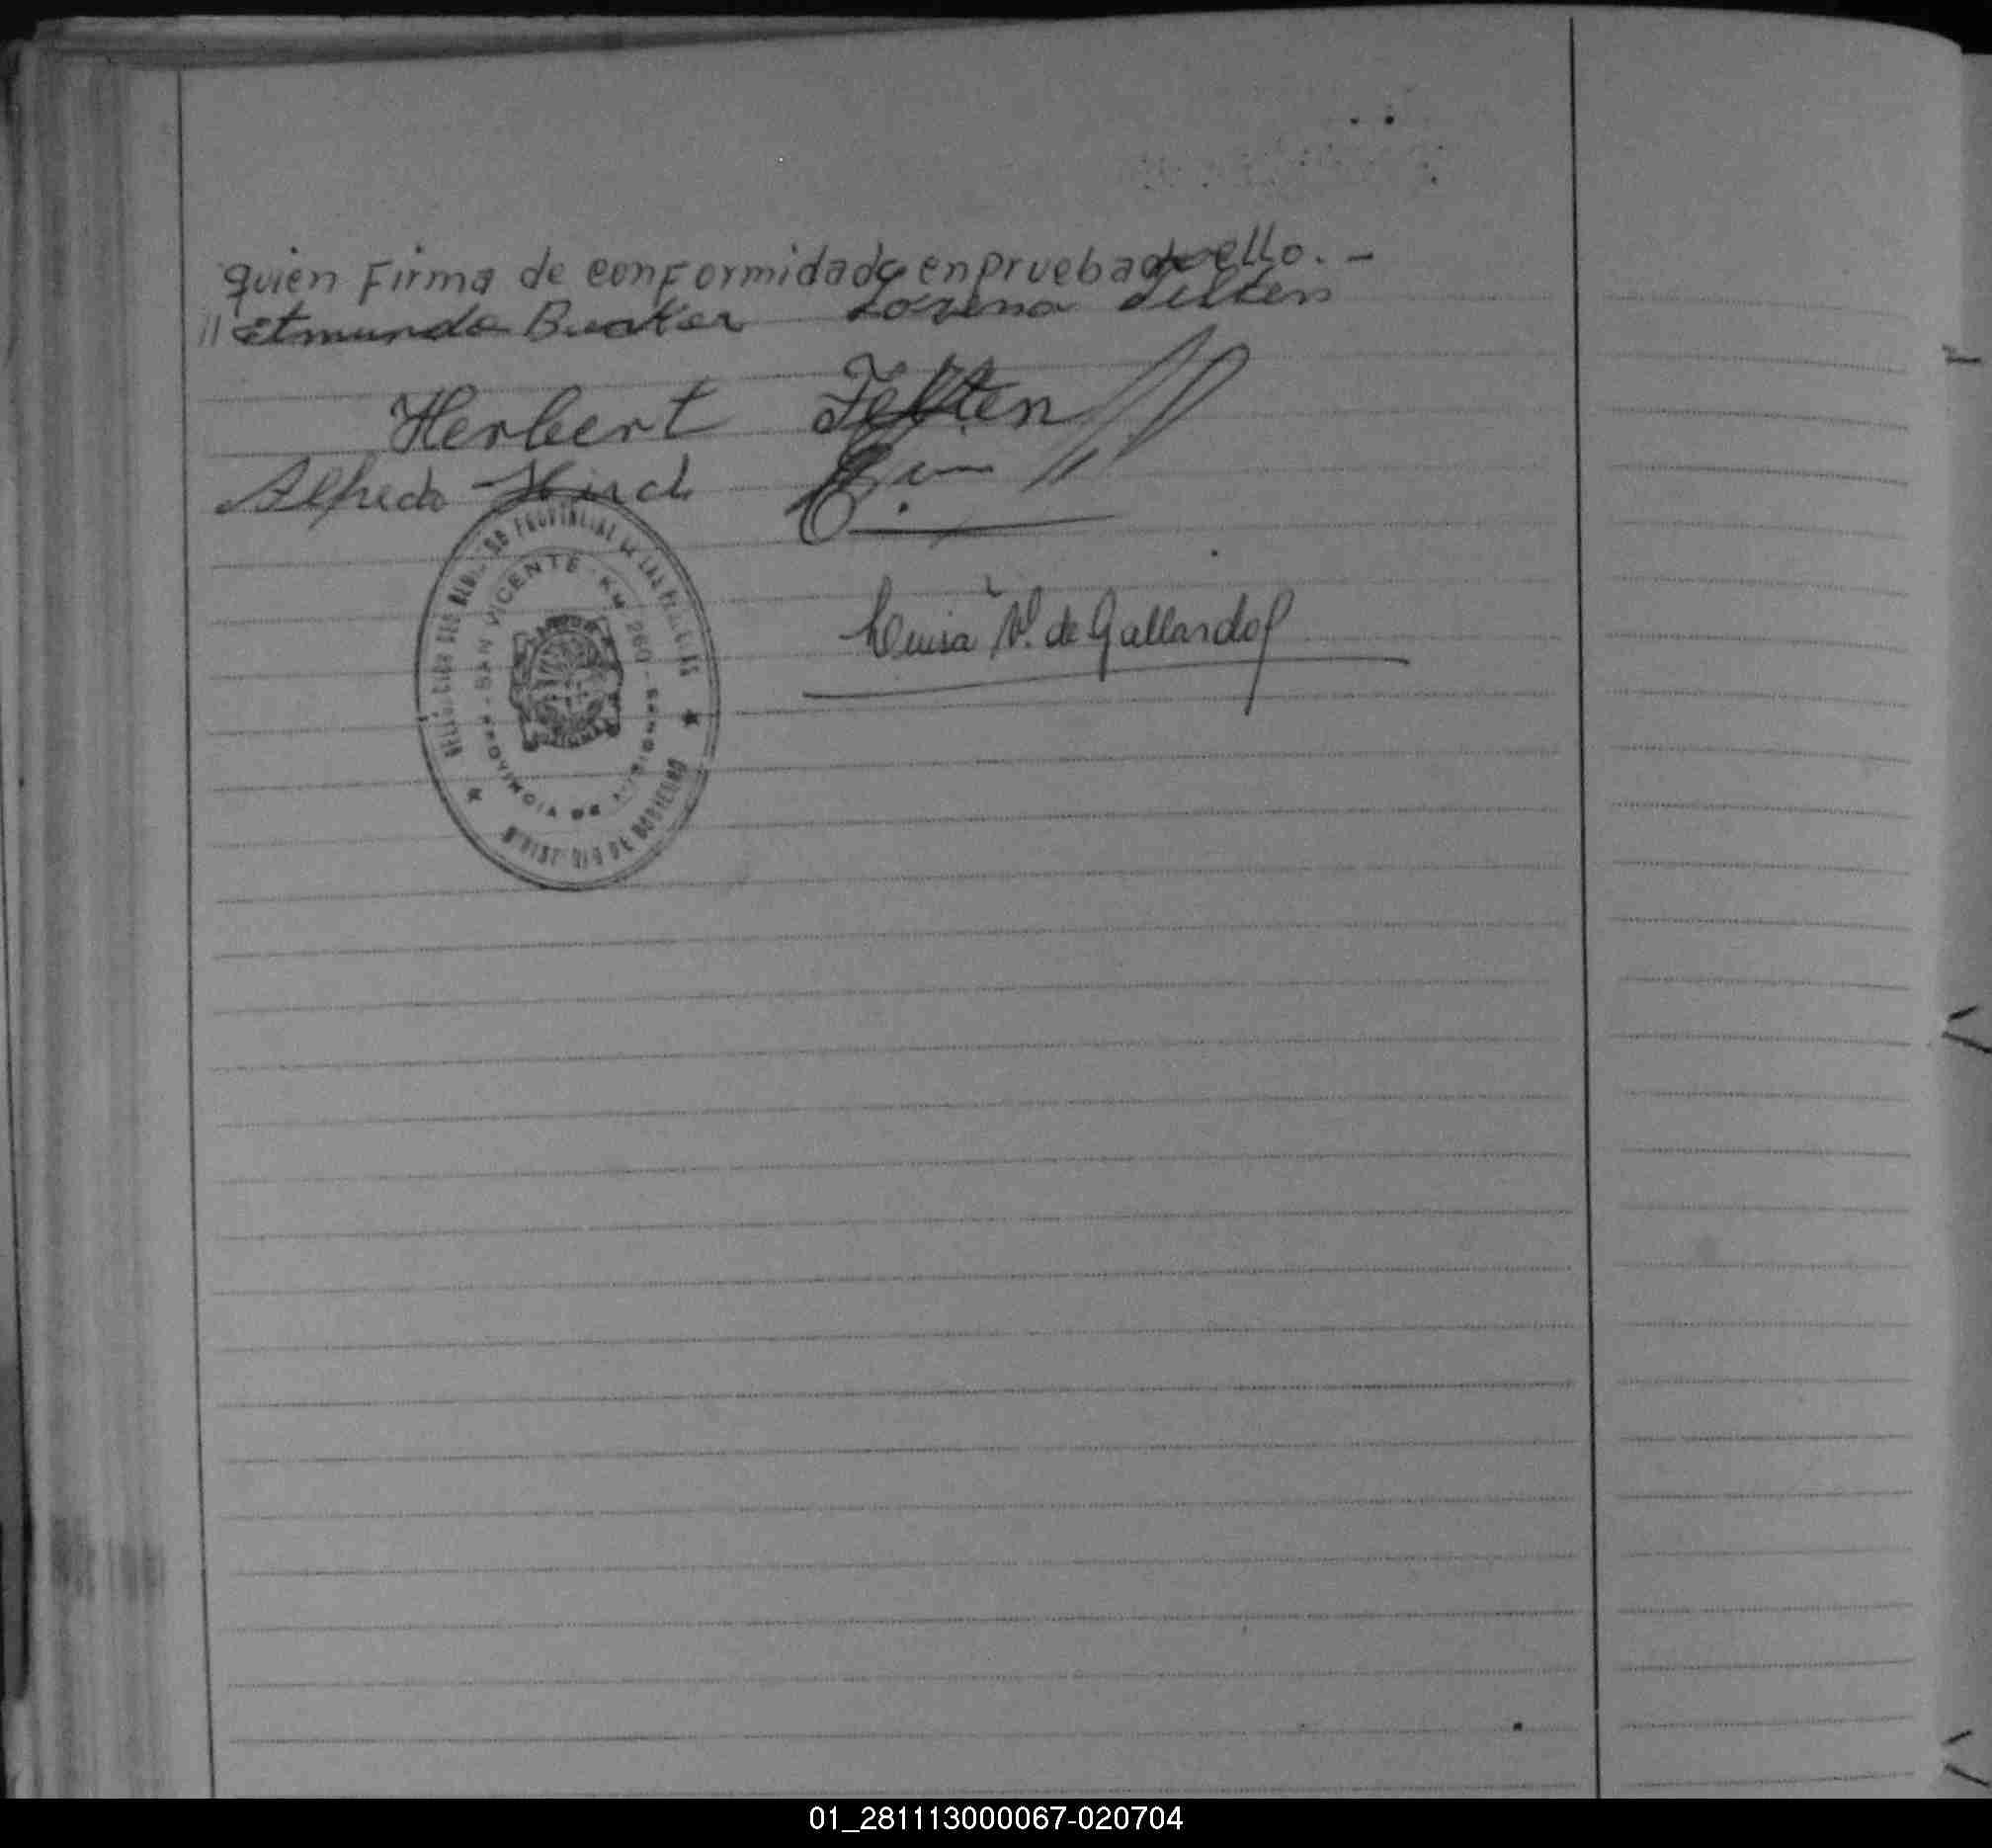 quien Firma de conformidad y en prueba de ello. -
// Etmundo Lorena Felten
Herbert Felten
Alfredo Hirch
SAN VICENTE - KM 260 - PROVINCIA DE MISIONES
MINISTERIO DE GOBIERNO
Luisa V. de Gallardo
01_281113000067-020704